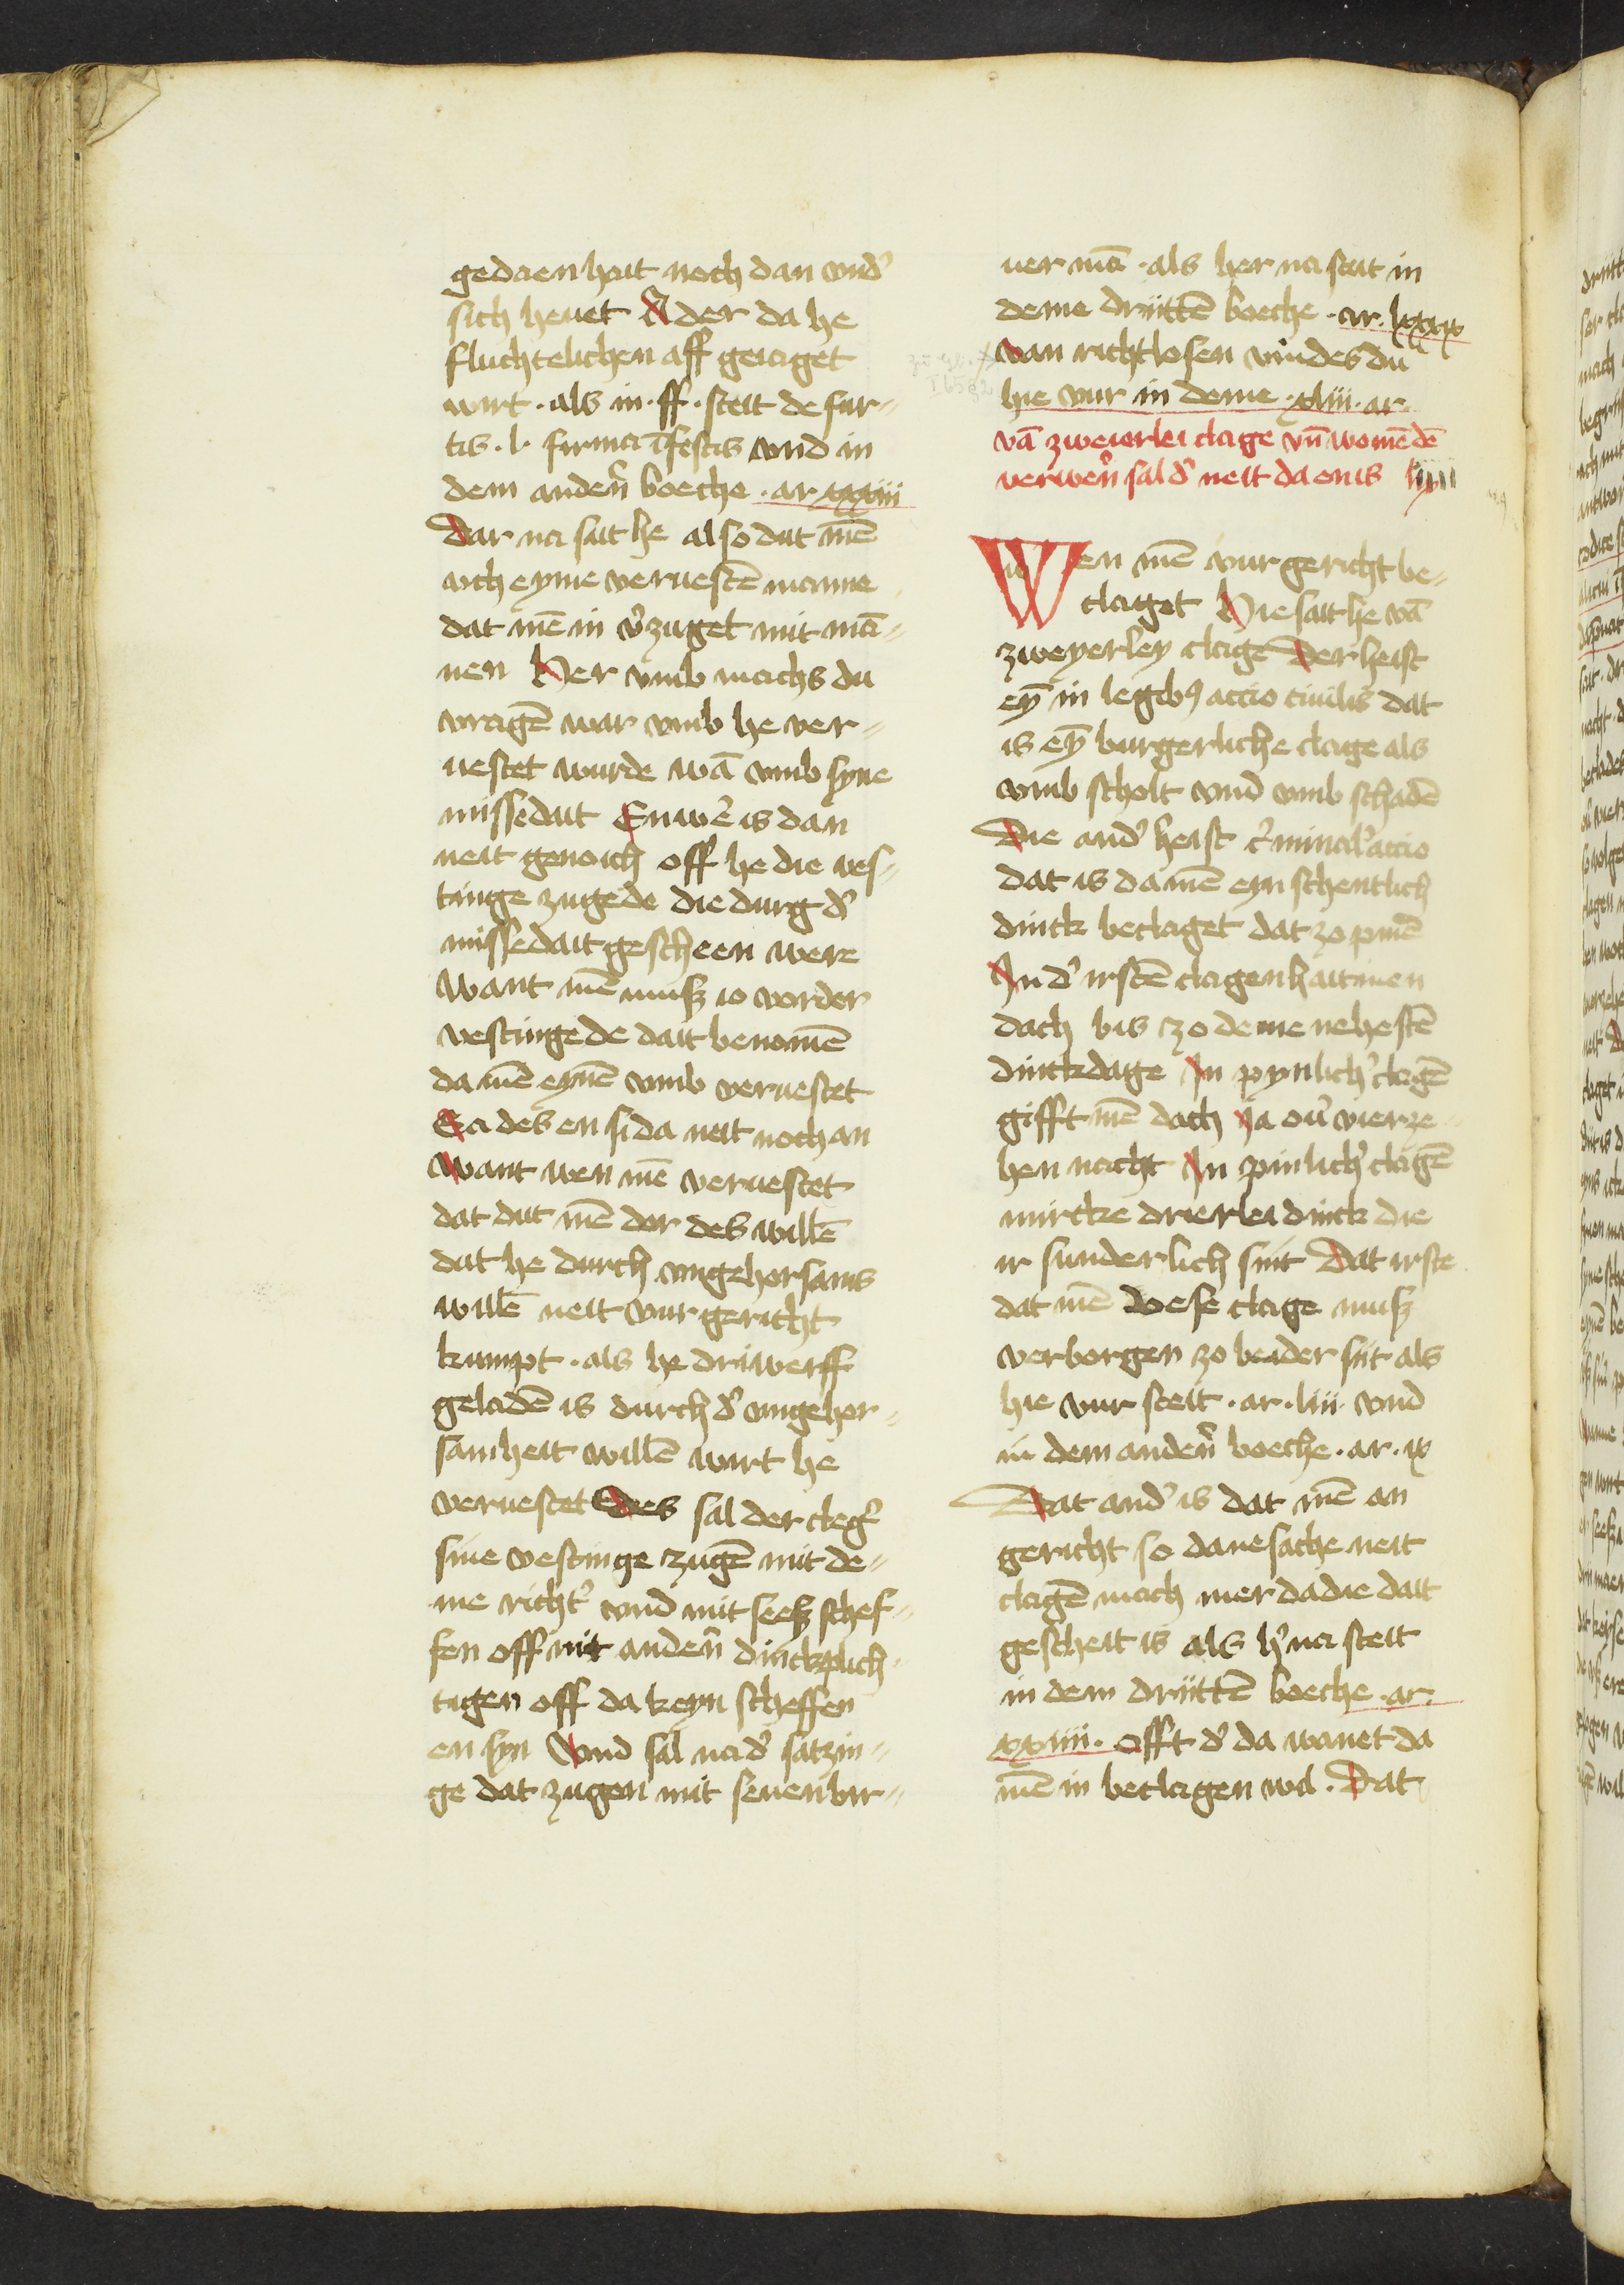 gedaen hait noch dan vnd᷑
sich heuet Ader da he
fluchtelichen aff geiaget
wirt · als in · ff · steit de fur-
tis · l · furma īfestis vnd in
dem anderñ boeche · ar xxxiiii
Dar na sait he also dat mē
ich eyme veruestē manne
dat mē in v᷑zuget mit mā-
nen Her vmb machs du
vragē war vmb he ver-
uestet wurde wā vmb syne
missedait Enwē is dan
neit genoich off he die ves-
tinge zugede die durg d᷑
missedait gescheen were
Want mē muß io vorder
vestinge de dait benomē
da mē eynē vmb veruestet
Ea des en si da neit noch an
Want wen mē veruestet
dat dut mē dor des willē
dat he durch vngehorsams
willē neit vur gericht
kumpt · als he driwerff
geladē is durch d᷑ vngehor-
samheit willē wirt he
veruestet Des sal der cleg᷑
sine vestinge zugē mit de-
me richt᷑ vnd mit seeß schef-
fen off mit anderñ dinckplich-
tigen off da keyn scheffen
en syn Vnd sal na d᷑ satzin-
ge dat zugen mit seuenbir-
uer mā · als her na steit in
deme driittē boeche · ar · lxxxix
Van richtlosen vindes du
hie vur in deme · xliii · ar
vā zweierlei clage vñ womē dē
verwerñ sal d᷑ neit da en is
Wen mē vur gericht be-
claget Hie sait he vā
zweyerley clage Der heist
eȳ in legibꝰ accio ciuilis dat
is eȳ burgerliche clage als
vmb scholt vnd vmb schadē
Die and᷑ heist c᷑minal᷑ accio
dat is da mē eyn schentlich
dinck beclaget dat zo pinē
In d᷑ irstē clagen hait men
dach bis zo deme nehestē
dinckdage In pynlich᷑ clagē
gifft mē dach ja ou᷑ vierze-
hen nacht In pinlich᷑ clagē
mircke drierlei dinck die
ir sunderlich sint Dat irste
dat mē dese clage muß
verborgen zo beider siit als
hie vur steit · ar · liii · vnd
in dem anderñ boeche · ar · ix
Dat and᷑ is dat mē an
gericht so dane sache neit
clagē mach mer da die dait
gescheit is als h᷑ na steit
in dem driittē boeche · ar ·
xxviiii · Offt d᷑ da wanet da
mē in beclagen wil · Dat